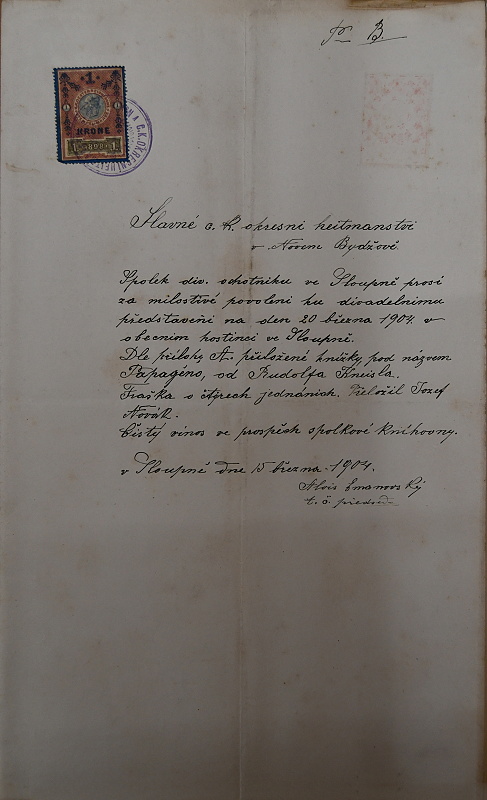 B.
1
KRONE
1898
C.K.OKRESNÍ
Slavné c. k. okresni heitmanstvi
v Novem Bydžově
Spolek div. ochotniku ve Sloupně prosi
za milostivé povoleni ku divadelnimu
představeňi na den 20 března 1904. v
obecnim hostinci ve Sloupně.
Dle přílohy A. přeložené knížky, pod názvem
Papagéno, od Rudolfa Kneisla.
Fraška o čtyrech jednáních. Přeložil Jozef
Novák.
Čistý vínos ve prospěch spolkové knihovny.
v Sloupně dne 15 března 1904.
Alois Emanovský
t. č. předseda